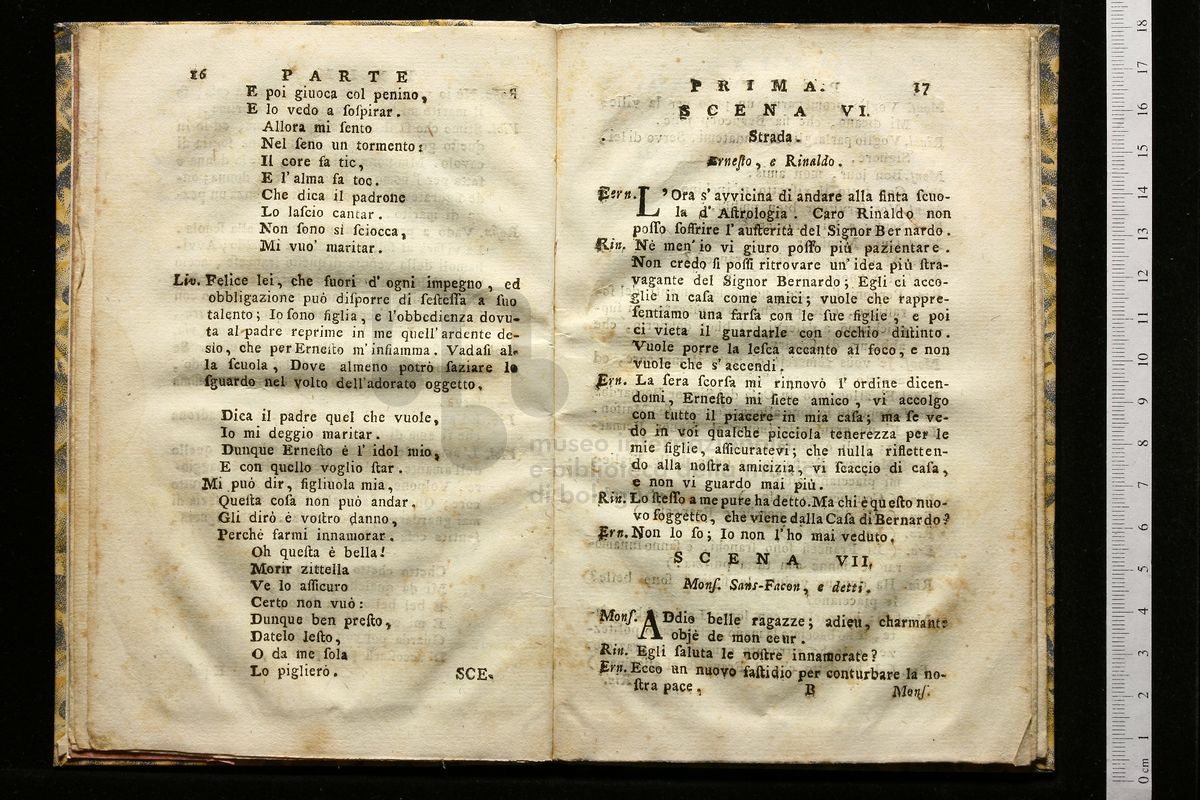 16 PARTE
E poi giuoca col penino,
E lo vedo a ſoſpirar.
Allora mi ſento
Nel ſeno un tormento:
Il core fa tic,
E l'alma fa toc.
Che dica il padrone
Lo laſcio cantar.
Non ſono sì ſciocca,
Mi vuo' maritar.
Liv. Felice lei, che fuori d'ogni impegno, ed
obbligazione può diſporre di ſeſteſſa a ſuo
talento; Io ſono figlia, e l'obbedienza dovu-
ta al padre reprime in me quell'ardente de-
sio, che per Erneſto m'infiamma. Vadaſi al-
la ſcuola, Dove almeno potrò ſaziare lo
ſguardo nel volto dell'adorato oggetto.
Dica il padre quel che vuole,
Io mi deggio maritar.
Dunque Erneſto è l'idol mio,
E con quello voglio ſtar.
Mi può dir, figliuola mia,
Queſta coſa non può andar.
Gli dirò è voſtro danno,
Perchè farmi innamorar.
Oh queſta è bella!
Morir zittella
Ve lo aſſicuro
Certo non vuò:
Dunque ben preſto,
Datelo leſto,
O da me ſola
Lo piglierò.
SCE-
PRIMA. 17
SCENA VI.
Strada.
Erneſto, e Rinaldo.
Eern. L'Ora s'avvicina di andare alla finta ſcuo-
la d'Aſtrologia. Caro Rinaldo non
poſſo ſoffrire l'auſterità del Signor Bernardo.
Rin. Nè men'io vi giuro poſſo più pazientare.
Non credo ſi poſſi ritrovare un'idea più ſtra-
vagante del Signor Bernardo; Egli ci acco-
glie in caſa come amici; vuole che rappre-
ſentiamo una farſa con le ſue figlie, e poi
ci vieta il guardarle con occhio diſtinto.
Vuole porre la leſca accanto al foco, e non
vuole che s'accendi.
Ern. La ſera ſcorſa mi rinnovò l'ordine dicen-
domi, Erneſto mi ſiete amico, vi accolgo
con tutto il piacere in mia caſa; ma ſe ve-
do in voi qualche picciola tenerezza per le
mie figlie, aſſicuratevi; che nulla rifletten-
do alla noſtra amicizia, vi ſcaccio di caſa,
e non vi guardo mai più.
Rin. Lo ſteſſo a me pure ha detto. Ma chi è queſto nuo-
vo ſoggetto, che viene dalla Caſa di Bernardo?
Ern. Non lo ſo; Io non l'ho mai veduto.
SCENA VII.
Monſ. Sans-Facon, e detti.
Monſ. ADdio belle ragazze; adieu, charmante
objè de mon ceur.
Rin. Egli ſaluta le noſtre innamorate?
Ern. Ecco un nuovo faſtidio per conturbare la no-
ſtra pace.
B Monſ.